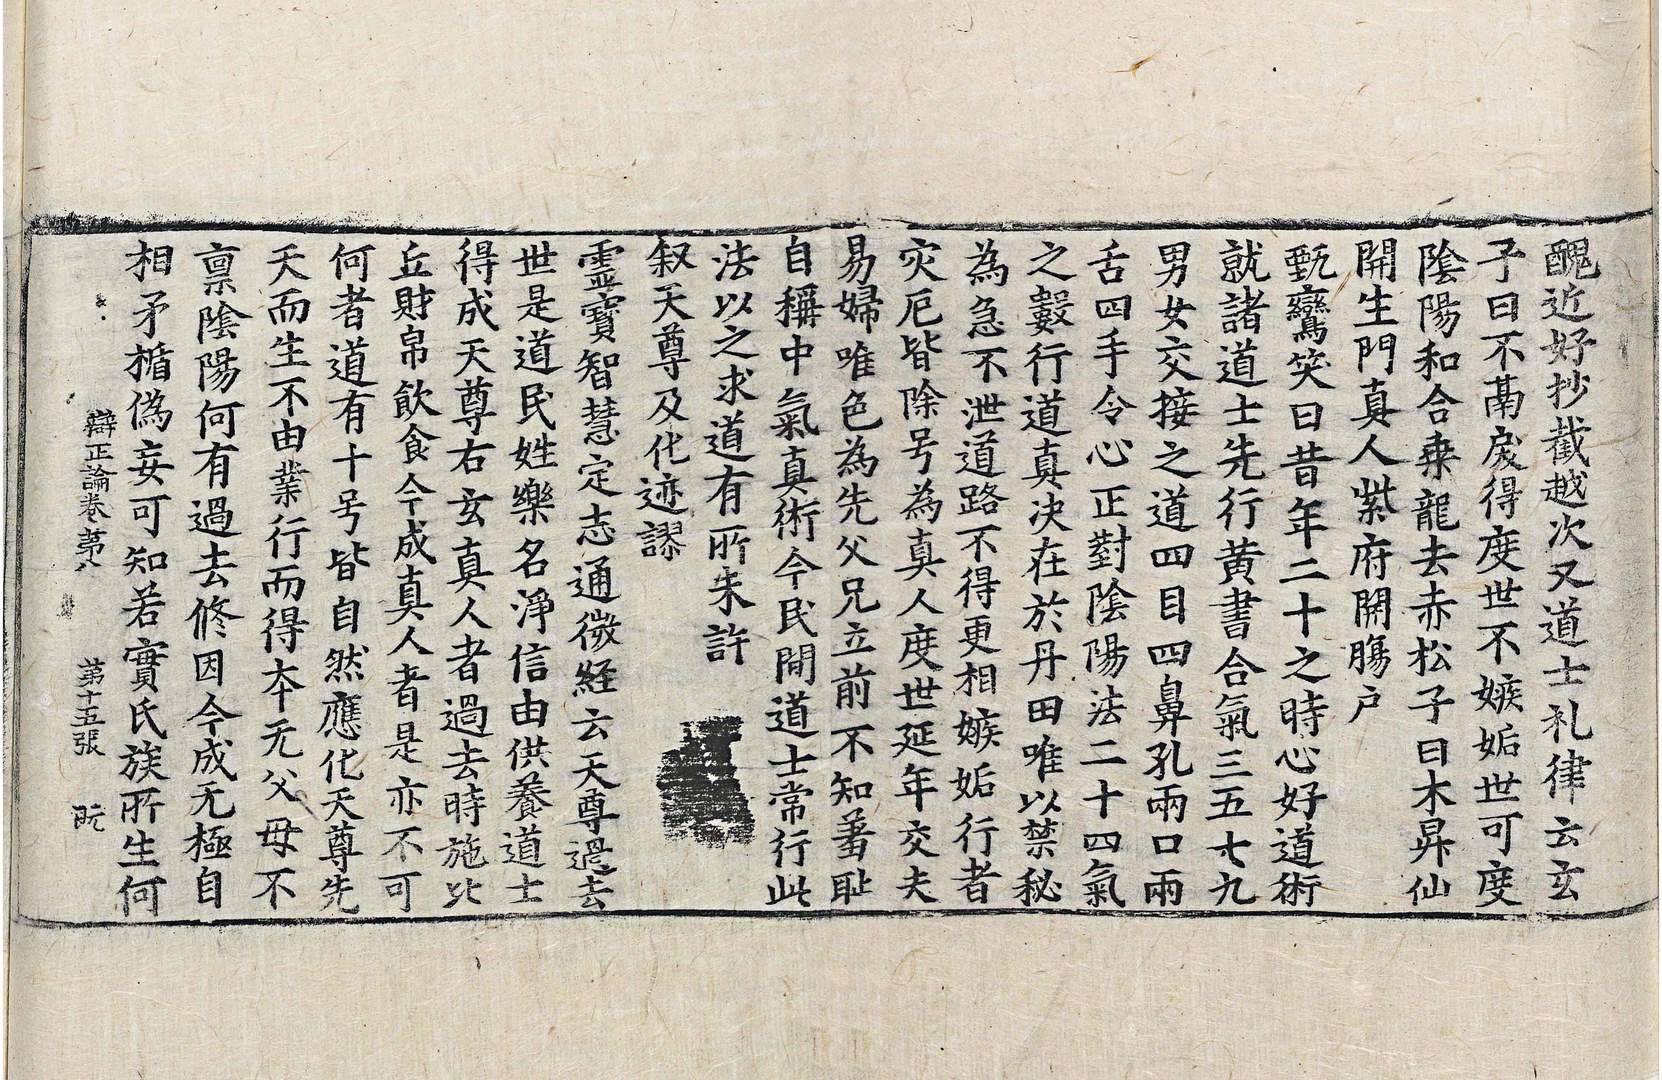 醜近好抄截越次又道士礼律云玄
子曰不鬲戾得度世不嫉妬世可度
陰陽和合乗龍去赤松子曰木昇仙
開生門真人紫府開腸户
甄鸞笑曰昔年二十之時心好道術
就諸道士先行黄書合氣三五七九
男女交接之道四目四鼻孔兩口兩
舌四手令心正對陰陽法二十四氣
之數行道真决在於丹田唯以禁秘
為急不泄道路不得更相嫉妬行者
灾厄皆除号為真人度世延年交夫
易婦唯色為先父兄立前不知羞耻
自稱中氣真術今民間道士常行此
法以之求道有所未許
叙天尊及化迹謬
靈寶智慧定志通微経云天尊過去
世是道民姓樂名淨信由供養道士
得成天尊右玄真人者過去時施比
丘財帛飲食今成真人者是亦不可
何者道有十号皆自然應化天尊先
天而生不由業行而得本无父母不
禀陰陽何有過去修因今成无極自
相矛楯偽妄可知若實氏族所生何
辯正論卷第八 第十五張 阮